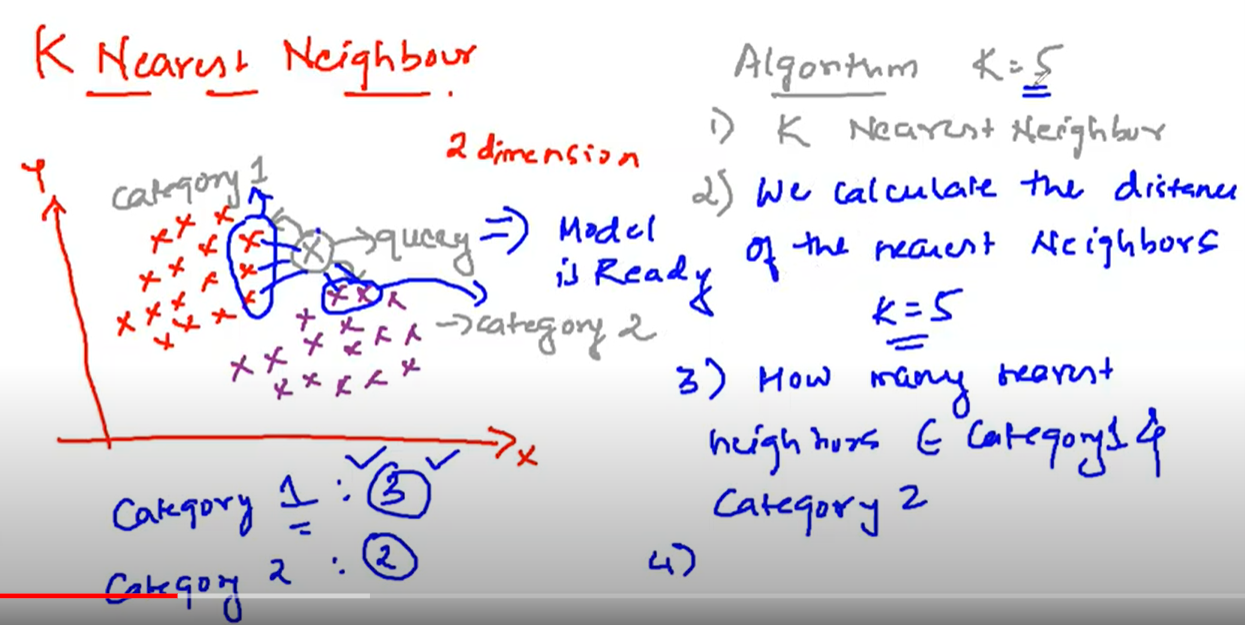 K Nearest Neighbour
2 dimension
Y
category 1
X
query
=> Model
is Ready
category 2
X
Category 1 : 3
Category 2 : 2
Algorithm K = 5
1) K Nearest Neighbur
2) We calculate the distance
of the nearest Neighbors
K = 5
3) How many nearest
neighbors ∈ Category 1 &
Category 2
4)